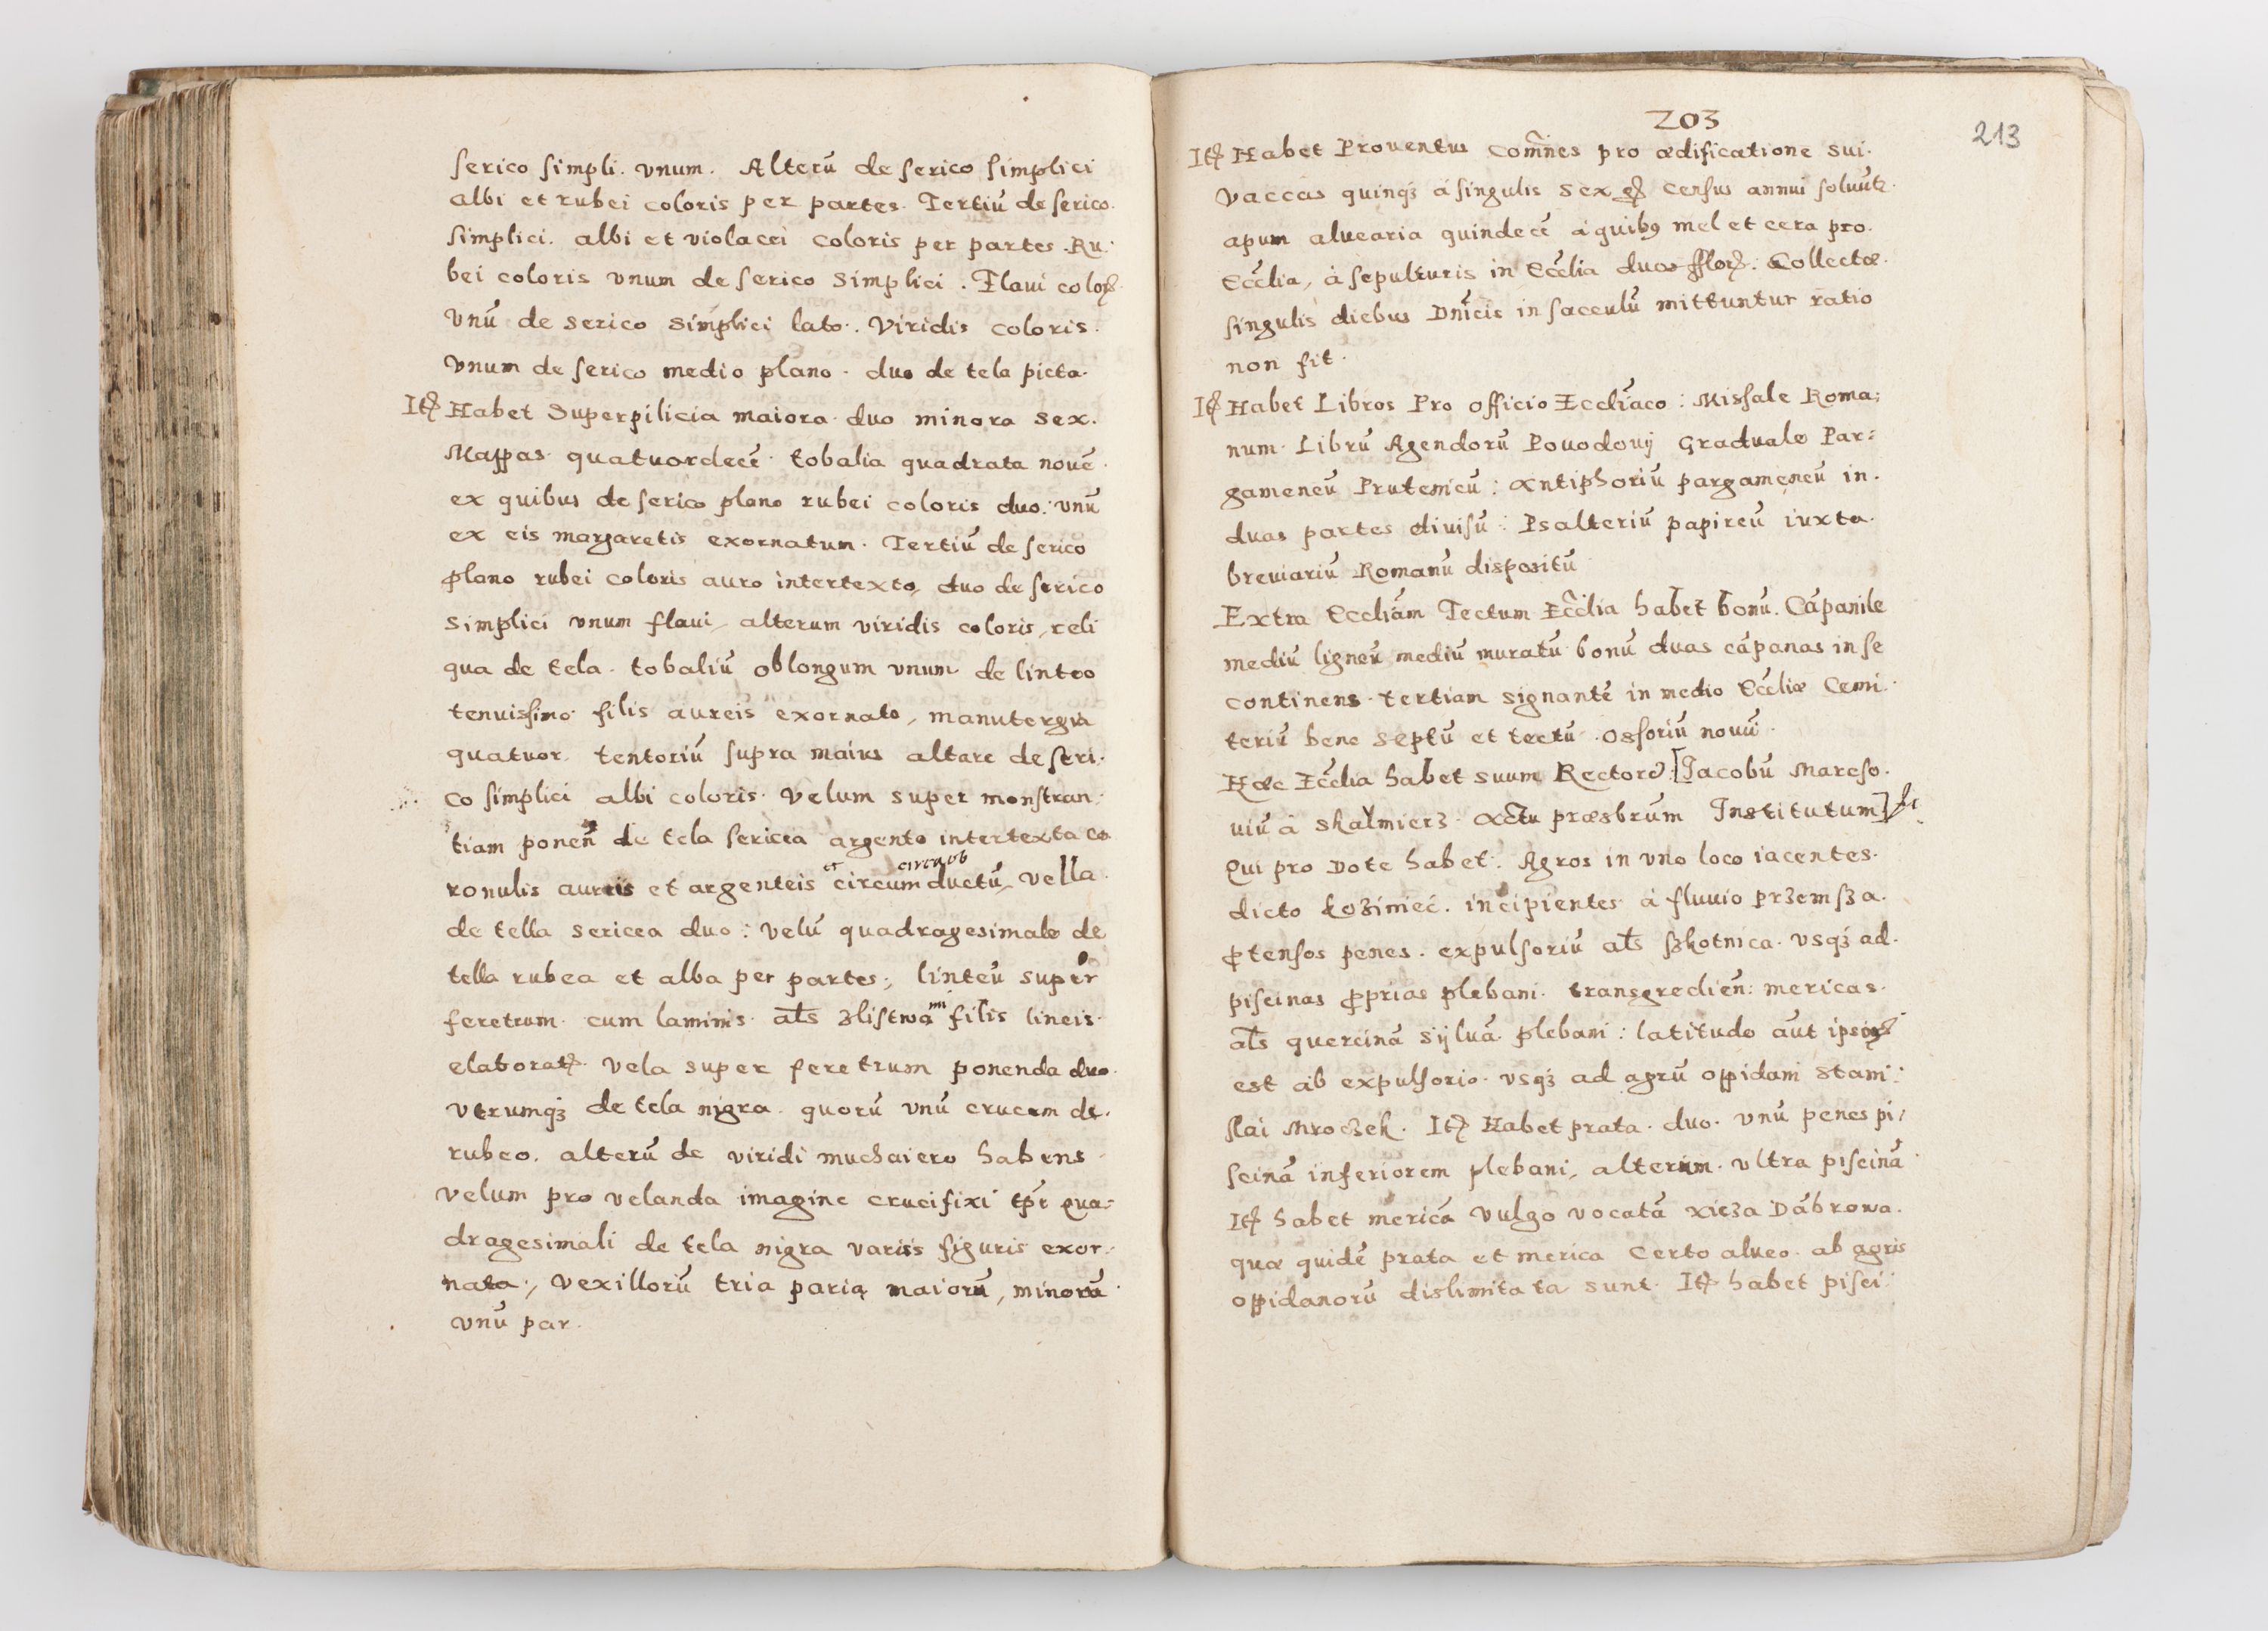 serico simpli. vnum. Alterū de serico simplici
albi et rubei coloris per partes. Tertiū de serico.
simplici. albi et violacei coloris per partes. Ru:
bei coloris vnum de serico simplici. Flaui colorꝭ
vnū de serico simplici lato. Viridis coloris.
vnum de serico medio plano. duo de tela picta.
Itꝭ Habet Superpilicia maiora duo minora sex.
Mappas quatuordecē tobalia quadrata nouē.
ex quibus de serico plano rubei coloris duo: vnū
ex eis margaretis exornatum. Tertiū de serico
plano rubei coloris auro intertexto, duo de serico
simplici vnum flaui, alterum viridis coloris, reli
qua de tela. tobaliū oblongum vnum de linteo
tenuissimo filis aureis exornato, manutergia
quatuor. tentoriū supra maius altare de seri.
co simplici albi coloris. Velum super monstran:
tiam ponen̄ de tela sericea argento intertexta co
ronulis aureis et argenteis et circum circaꝙ ductū, vella.
de tella sericea duo: velū quadragesimale de
tella rubea et alba per partes:, linteū super
feretrum cum laminis. als zlistwami filis lineis
elaboratꝭ. vela super feretrum ponenda duo.
vtrumqꝫ de tela nigra. quorū vnū crucem de.
rubeo. alterū de viridi muchaiero habens
velum pro velanda imagine crucifixi tp̄r qua=
dragesimali de tela nigra variis figuris exor:
nata:, vexillorū tria paria maiorū, minorū
vnū par.
203
213
Itꝭ Habet Prouentus com̄nes pro ædificatione sui.
vaccas quinqꝫ à singulis sex gꝭ census annui soluūt.
apum aluearia quindecē à quibꝰ mel et cera pro.
Eccl̄ia, à sepulturis in Eccl̄ia duos fflorꝭ. Collectæ.
singulis diebus Dn̄icis in sacculū mittuntur ratio
non fit.
Itꝭ Habet Libros Pro officio Eccl̄iaco: Missale Roma;
num. Librū Agendorū Powodouij Graduale Par=
gameneū Prutenicū: Antiphoriū pargameneū in.
duas partes diuisū: Psalteriū papireū iuxta.
breuiariū Romanū dispositū
Extra Eccliām Tectum Eccl̄ia habet bonū. Cāpanile
mediū ligneū mediū muratū bonū duas cāpanas in se
continens. tertiam signantē in medio Eccl̄iæ Cemi.
teriū bene septū et tectū. Ossoriū nouū.
Hæc Eccl̄ia habet suum Rectorē. [Jacobū Marcso.
uiū à Skalmierz. Actu præsbrūm Institutum]
Qui pro Dote habet. Agros in vno loco iacentes.
dicto Łozimieć. incipientes à fluuio przemsza.
ꝓtensos penes. expulsoriū als szkotnica. vsqꝫ ad.
piscinas ꝓprias plebani. transgredien̄: mericas.
als quercinā sijluā plebani: latitudo aūt ipsiꝰ
est ab expulsorio. vsqꝫ ad agrū oppidani Stani:
slai Mroczek. Itꝭ Habet prata. duo. vnū penes pi,
scinā inferiorem plebani, alterum. vltra piscinā
Itꝭ habet mericā vulgo vocatā xieza Dąbrowa.
quæ quidē prata et merica certo alueo. ab agris
oppidanorū dislimitata sunt. Itꝭ habet pisci: